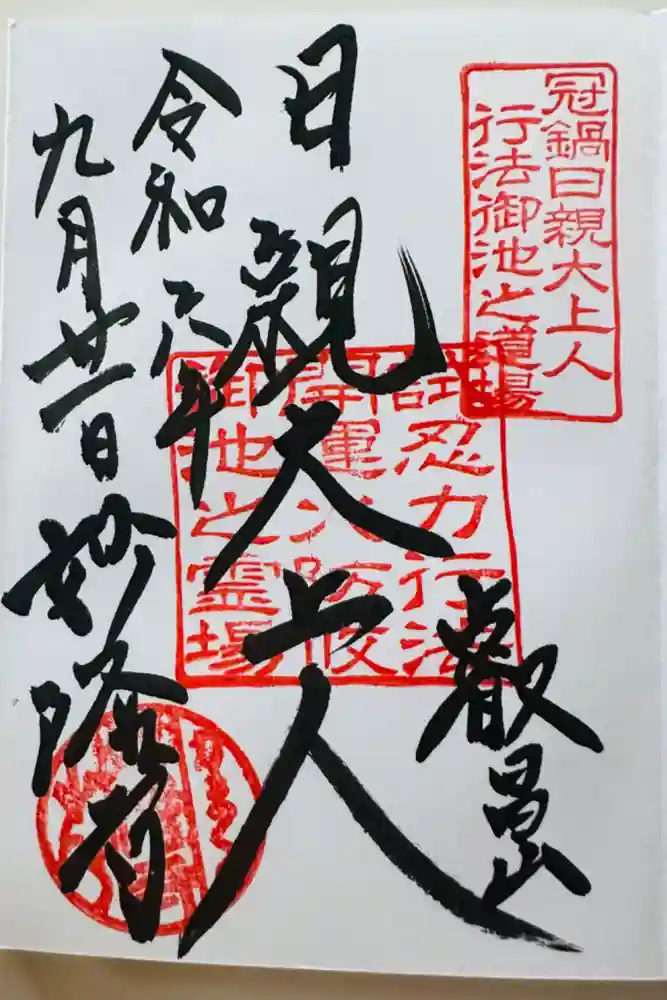 冠鍋日親大上人
行法御池之道場
叡昌山
日親大上人
試忍力行法
開運火防伏
御池之霊場
令和六年
九月廿一日
妙隆寺